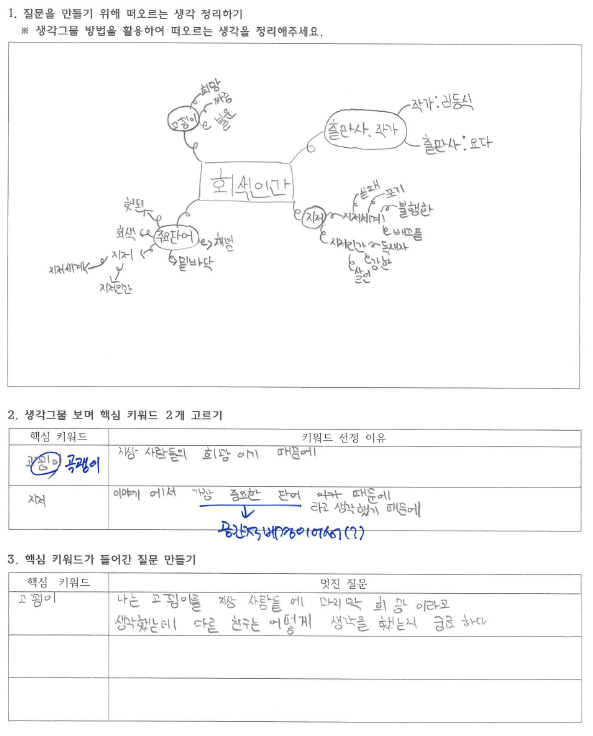 1. 질문을 만들기 위해 떠오르는 생각 정리하기
※ 생각그물 방법을 활용하여 떠오르는 생각을 정리해주세요.
회색인간
고굉이
희망
출판사, 작가
작가:김동식
출판사:요다
주요단어
횃불
회색
지저
지저세계
지저인간
밑바닥
지저
지저세계
실패
포기
불행한
배고픔
지저인간
독재자
강한
살인
2. 생각그물 보며 핵심 키워드 2개 고르기
핵심 키워드
키워드 선정 이유
고굉이 곡괭이
지상 사람들의 희망 이기 때문에
지저
이야기 에서 가장 중요한 단어 때문에
라고 생각했기 때문에
공간적 배경이어서(?)
3. 핵심 키워드가 들어간 질문 만들기
핵심 키워드
멋진 질문
고굉이
나는 고굉이를 지상 사람들 에 마지막 희망 이라고
생각했는데 다른 친구는 어떻게 생각을 했는지 궁금 하다